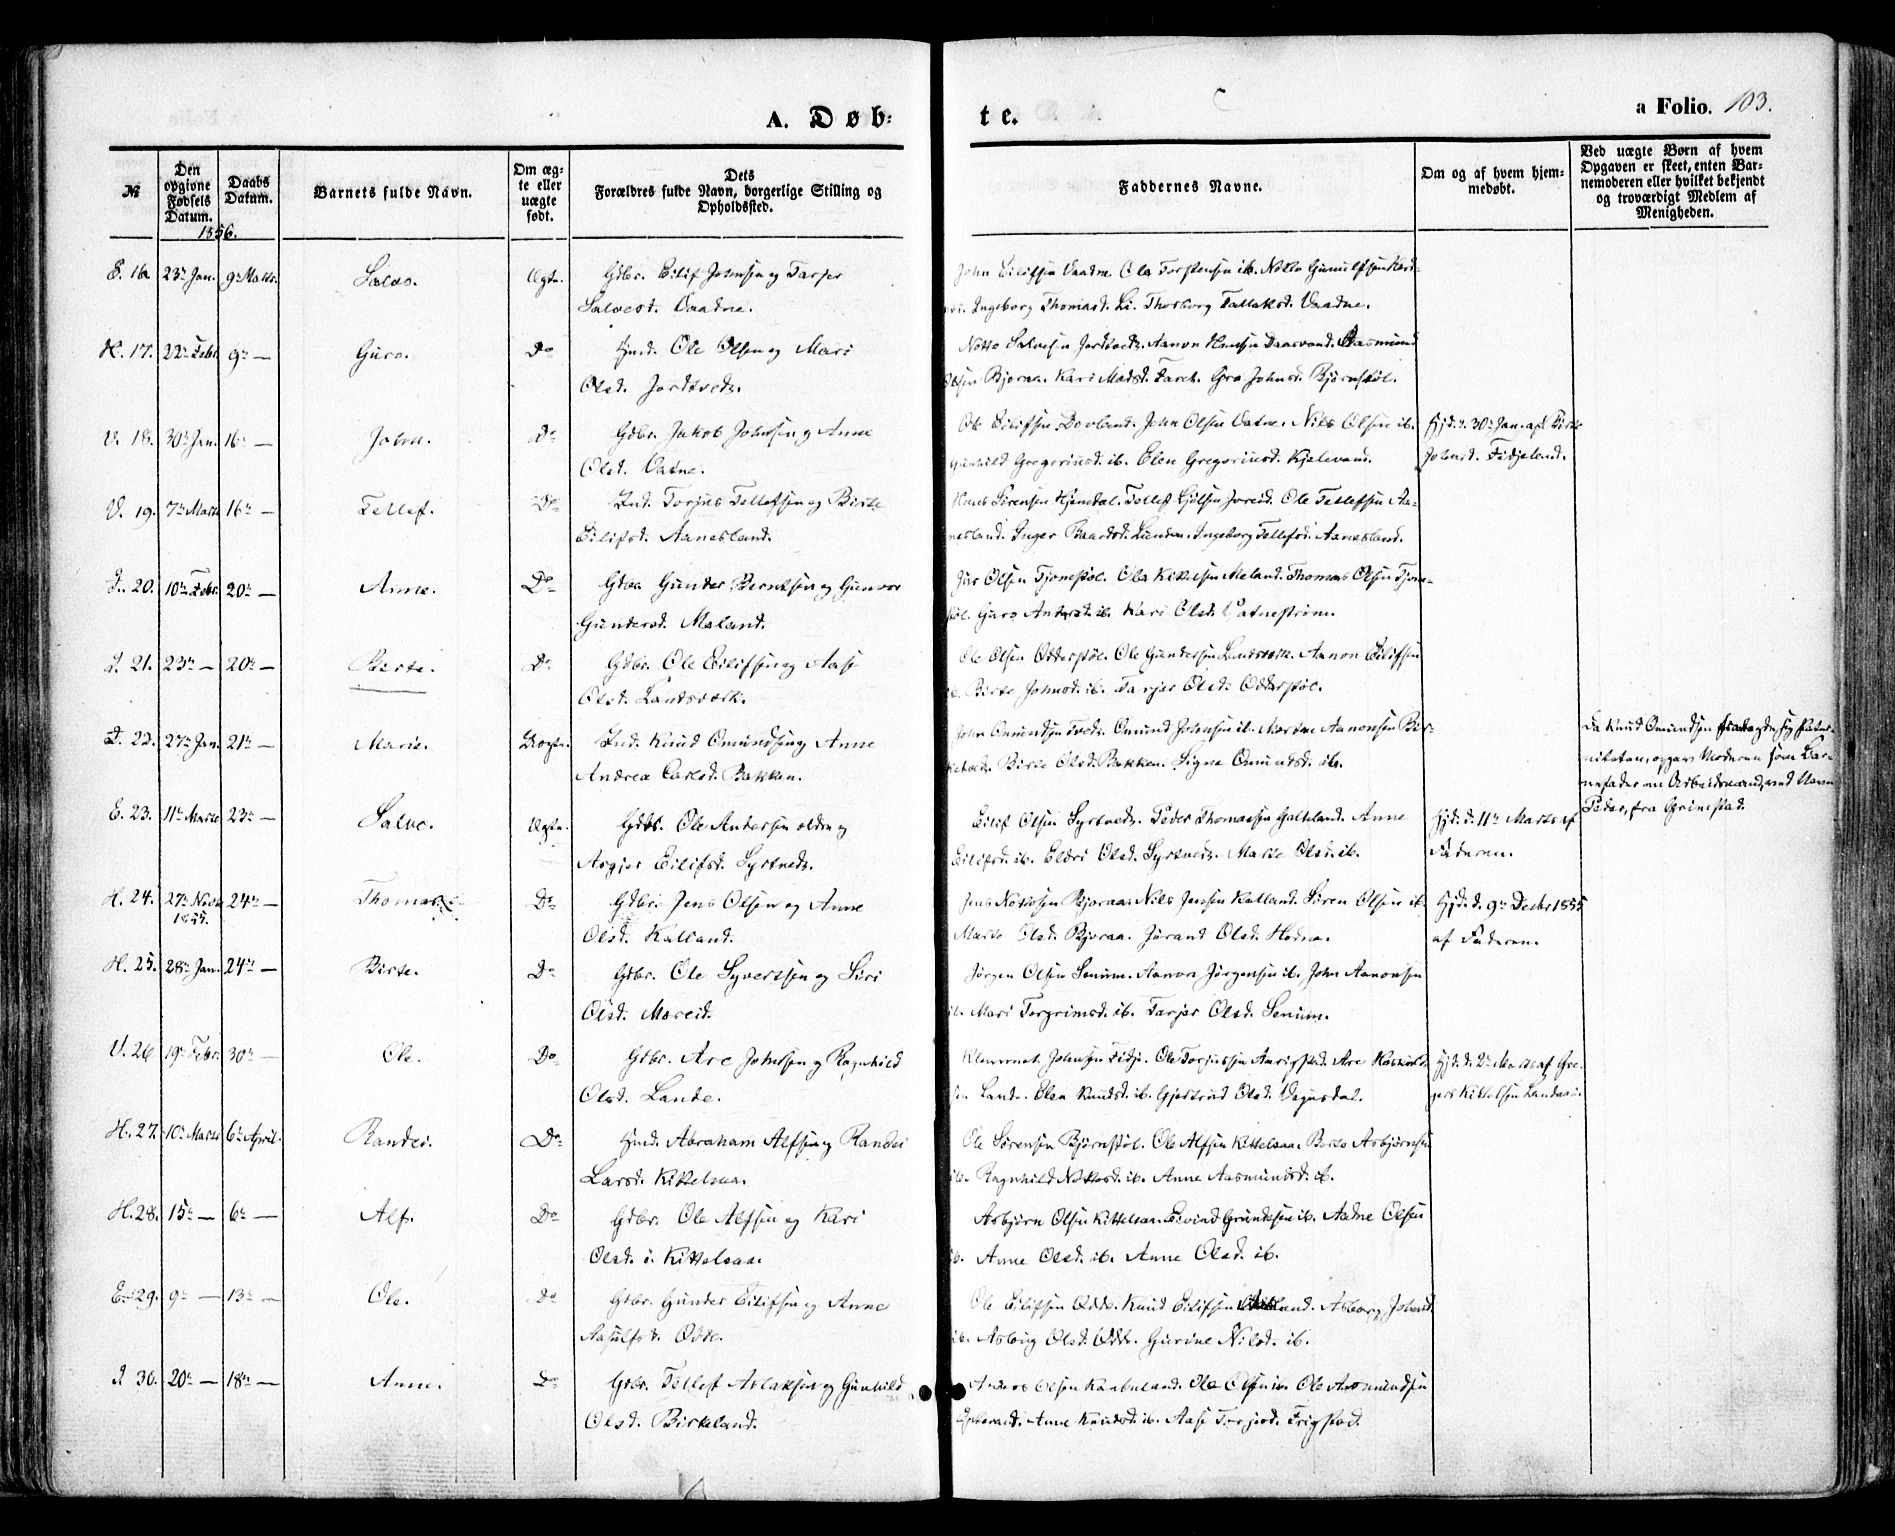 A. Døb-
te.
a Folio. 103.
№
Den opgivne Fødsels Datum.
Daabs Datum.
Barnets fulde Navn.
Om ægte eller uægte født.
Dets Forældres fulde Navn, borgerlige Stilling og Opholdssted.
Faddernes Navne.
Om og af hvem hjemmedøbt.
Ved uægte Børn af hvem Opgaven er skeet, enten Barnemoderen eller hvilket bekjendt og troværdigt Medlem af Menigheden.
1856.
E. 16 23de Jan. 9de Marts. Salve. Ægte. Gdbr. Eilif Johnsen og Tarjer
Salvesd. Vaatne.
John Eilifsen Vaatne Ole Torstensen ib.
Ingeborg Thomasd. Li. Thorborg Tallaksd. Vaatne.
H. 17. 22de Febr. 9de — Guro. Do Ole Olsen og Mari
Olsd. Jordtveds.
Aanon Hansen Daasvand. Aasmund
Olsen Bjoraa. Kari Madsd. Gro Johnsd. Bjørnstøl.
V. 18. 30te Jan. 16de — John. Do Gdbr. Jakob Johnsen og Anne
Olsd. Vatne.
Ole Eilifsen Dovland. John Olsen Vatne. Nils Olsen ib.
Gunhild Gregoriusd. ib. Elen Gregoriusd. Kjelevand.
Hjd. d. 30te Jan. af Birte
Johnsd. Fidjeland.
V. 19. 7de Marts 16de — Tellef. Do Ind. Torjus Tellefsen og Birte
Eilifsd. Aanesland.
Knud Sørensen Hjemdal. Ole Tellefsen Aa-
nesland. Inger Baardsd. Lunden. Ingeborg Tellefsd. Aanesland.
I. 20. 10de Febr. 20de — Anne. Do Gdbr. Gunder Berntsen og Gunvor
Gundersd. Meland.
Ole Kittelsen Meland. Thomas Olsen Tjom-
støl. Guro Andersd. ib. Kari Olsd. Vatnestrøm.
I. 21. 23de — 20de — Birte. Do Gdbr. Ole Eilifsen og Aase
Olsd. Landsverk.
Ole Olsen Odderstøl. Ole Gundersen Landsverk. Aanon Eilifsen
ib. Birte Johnsd. ib. Tarjer Olsd. Odderstøl.
22. 27de Jan. 21de — Marie. Uægte. Ind. Knud Omundsen og Anne
Andrea Carlsd. Bakken.
John Omundsen Tveds. Omund Johnsen ib. Aanonsen Bir-
ketveds. Birte Olsd. Bakken. Signe Omundsd. ib.
Da Knud Omundsen fralagde sig Pater-
niteten, opgav Moderen som Bar-
nefader en Arbeidsmand, ved Navn
Peder, fra Grimstad.
E. 23. 11te Marts 23de — Salve. Ægte. Gdbr. Ole Andersen og
Asgjer Eilifsd. Syrtveds.
Eilif Olsen Syrtveds. Peder Thomassen Galteland. Anne
Eilifsd. ib. Eldri Olsd. Syrtveds. Marte Olsd. ib.
Hjd. d. 11te Marts af
Faderen.
H. 24. 27de Novbr 24de — Thomas. Do Gdbr. Jens Olsen og Anne
1855.
Olsd. Kalland.
Jens Nottosen Bjoraa. Nils Jensen Kalland. Søren Olsen ib.
Marte Olsd. Bjoraa. Jørand Olsd. Hodne.
Hjd. d. 9de Decbr 1855
af Faderen.
H. 25. 28de Jan. 24de — Birte. Do Gdbr. Ole Syvertsen og Siri
Olsd. Moreid.
Jørgen Olsen Senum. Aanon Jørgensen ib. John Aanonsen
ib. Mari Torgrimsd. ib. Tarjer Olsd. Senum.
V. 26 19de Febr. 30te — Ole. Do Gdbr. Are Johnsen og Ragnhild
Olsd. Lande.
Klemmet Johnsen Fidje. Ole Torjussen
Lande. Elen Knudsd. ib. Gjertrud Olsd. Vegusdal.
Hjd. d. 2de Marts af Gre-
gers Kittelsen
H. 27. 10de Marts 6te April. Randei. Do Abraham Alfsen og Randei
Larsd. Kittelsaa.
Ole Sørensen Bjørnstøl. Ole Alfsen Kittelsaa. Asbjørnsen
ib. Ragnhild Nottosd. ib. Anne Aasmundsd. ib.
H. 28. 15de — 6te — Alf. Do Gdbr. Ole Alfsen og Kari
Olsd. i Kittelsaa.
Asbjørn Olsen Kittelsaa. Eivind ib. Aadne Olsen
ib. Anne Olsd. ib. Anne Olsd. ib.
E. 29. 9de — 13de — Ole. Do Gdbr. Gunder Eilifsen og Anne
Aasulfsd. Odde.
Ole Eilifsen Odde. Knud Eilifsen
ib. Aslaug Olsd. Odde. Gurine Nilsd. ib.
I 30. 20de — 18de — Anne. Do Gdbr. Tellef Aslaksen og Gunhild
Olsd. Birkeland.
Anders Olsen Ole Olsen ib. Ole Aasmundsen
Anne Knudsd. ib. Aase Torjusd. Frigstad.